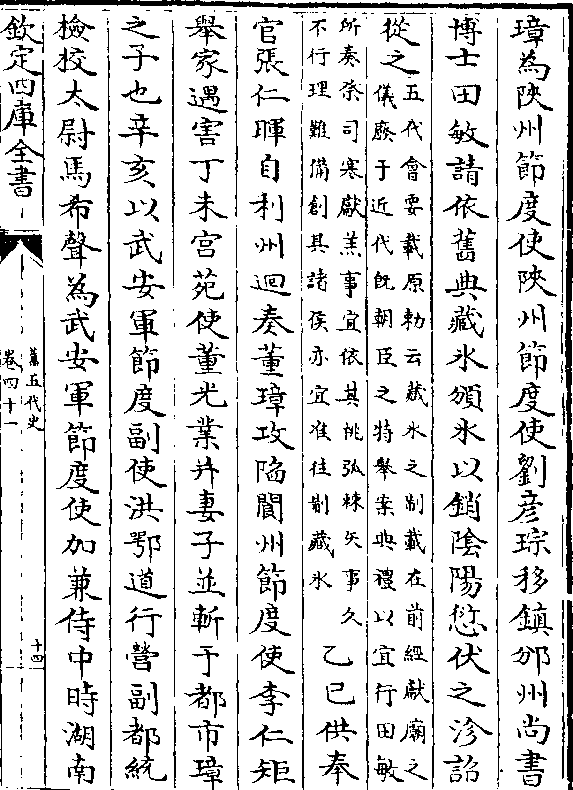 璋為陜州節度使陜州節度使劉彦琮移鎮邠州尚書
博士田敏請依舊典藏氷頒氷以銷陰陽愆伏之沴詔
從之五代㑹要載原勅云藏氷之制載在前經獻廟之
儀廢于近代旣朝臣之特舉案典禮以宜行田敏
所奏祭司寒獻羔事宜依其桃弧棘矢事久
不行理難備創其諸侯亦宜准往制藏氷
乙巳供奉
官張仁暉自利州迴奏董璋攻陷閬州節度使李仁矩
舉家遇害丁未宫苑使董光業并妻子並斬于都市璋
之子也辛亥以武安軍節度副使洪鄂道行營副都統
檢挍太尉馬希聲為武安軍節度使加兼侍中時湖南
欽定四庫全書
舊五代史
卷四十一
十四